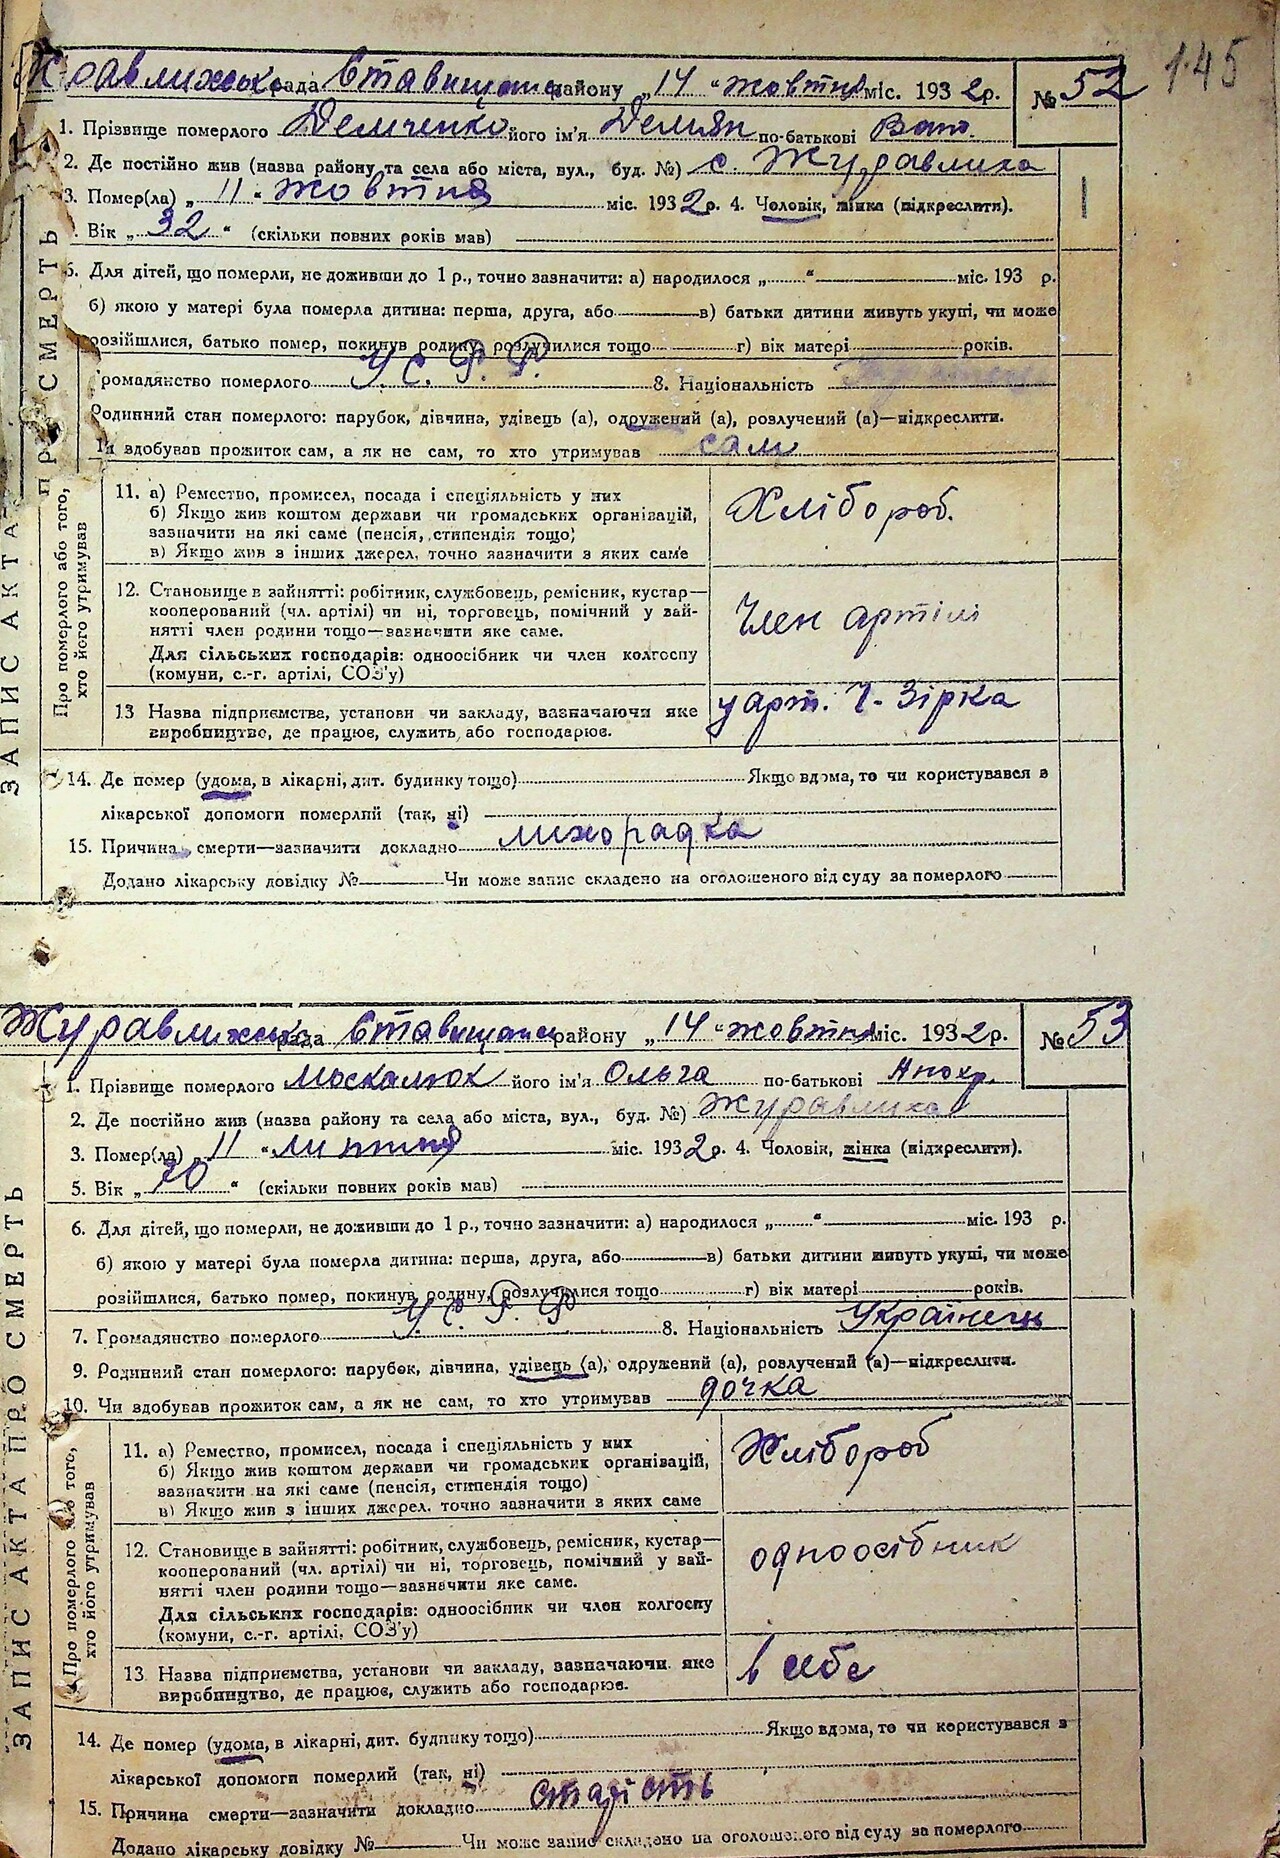 145
Журавлиська рада Ставищанськ району „14 “ жовтня міс. 1932 р. № 52
1. Прізвище померлого Демченко його ім'я Демян по-батькові
2. Де постійно жив (назва району та села або міста, вул., буд. №) с. Журавлиха
3. Помер(ла) „ 11 “ жовтня міс. 1932 р. 4. Чоловік, жінка (підкреслити).
Вік „ 32 “ (скільки повних років мав)
6. Для дітей, що померли, не доживши до 1 р., точно зазначити: а) народилося „ “ міс. 193 р.
б) якою у матері була померла дитина: перша, друга, або в) батьки дитини живуть укупі, чи може
розійшлися, батько помер, покинув родину, розлучилися тощо г) вік матері років.
громадянство померлого У. С. Р. Р. 8. Національність
Родинний стан померлого: парубок, дівчина, удівець (а), одружений (а), розлучений (а)—підкреслити.
Чи здобував прожиток сам, а як не сам, то хто утримував сам
ЗАПИС АКТА ПРО СМЕРТЬ
Про померлого або того,
хто його утримував
11. а) Ремество, промисел, посада і спеціяльність у них
б) Якщо жив коштом держави чи громадських організацій,
зазначити на які саме (пенсія, стипендія тощо)
в) Якщо жив з інших джерел, точно зазначити з яких саме
Хлібороб.
12. Становище в зайнятті: робітник, службовець, ремісник, кустар—
кооперований (чл. артілі) чи ні, торговець, помічний у зай-
нятті член родини тощо—зазначити яке саме.
Для сільських господарів: одноосібник чи член колгоспу
(комуни, с.-г. артілі, СОЗ'у)
Член артілі
13 Назва підприємства, установи чи закладу, зазначаючи яке
виробництво, де працює, служить, або господарює.
у арт. Ч- Зірка
14. Де помер (удома, в лікарні, дит. будинку тощо) Якщо вдома, то чи користувався з
лікарської допомоги померлий (так, ні)
15. Причина смерти—зазначити докладно лихорадка
Додано лікарську довідку № Чи може запис складено на оголошеного від суду за померлого
Журавлиська рада Ставищанськ району „14 “ жовтня міс. 1932 р. № 53
1. Прізвище померлого Москалюк його ім'я Ольга по-батькові
2. Де постійно жив (назва району та села або міста, вул., буд. №) Журавлиха
3. Помер(ла) „ 11 “ липня міс. 1932 р. 4. Чоловік, жінка (підкреслити).
5. Вік „ 70 “ (скільки повних років мав)
6. Для дітей, що померли, не доживши до 1 р., точно зазначити: а) народилося „ “ міс. 193 р.
б) якою у матері була померла дитина: перша, друга, або в) батьки дитини живуть укупі, чи може
розійшлися, батько помер, покинув родину, розлучилися тощо г) вік матері років.
7. Громадянство померлого У. С. Р. Р. 8. Національність Українець
9. Родинний стан померлого: парубок, дівчина, удівець (а), одружений (а), розлучений (а)—підкреслити.
10. Чи здобував прожиток сам, а як не сам, то хто утримував дочка
ЗАПИС АКТА ПРО СМЕРТЬ
Про померлого або того,
хто його утримував
11. а) Ремество, промисел, посада і спеціяльність у них
б) Якщо жив коштом держави чи громадських організацій,
зазначити на які саме (пенсія, стипендія тощо)
в) Якщо жив з інших джерел. точно зазначити з яких саме
Хлібороб
12. Становище в зайнятті: робітник, службовець, ремісник, кустар—
кооперований (чл. артілі) чи ні, торговець, помічний у зай-
нятті член родини тощо—зазначити яке саме.
Для сільських господарів: одноосібник чи член колгоспу
(комуни, с.-г. артілі, СОЗ'у)
одноосібник
13 Назва підприємства, установи чи закладу, зазначаючи яке
виробництво, де працює, служить або господарює.
в себе
14. Де помер (удома, в лікарні, дит. будинку тощо) Якщо вдома, то чи користувався з
лікарської допомоги померлий (так, ні)
15. Причина смерти—зазначити докладно старість
Додано лікарську довідку № Чи може запис складено на оголошеного від суду за померлого